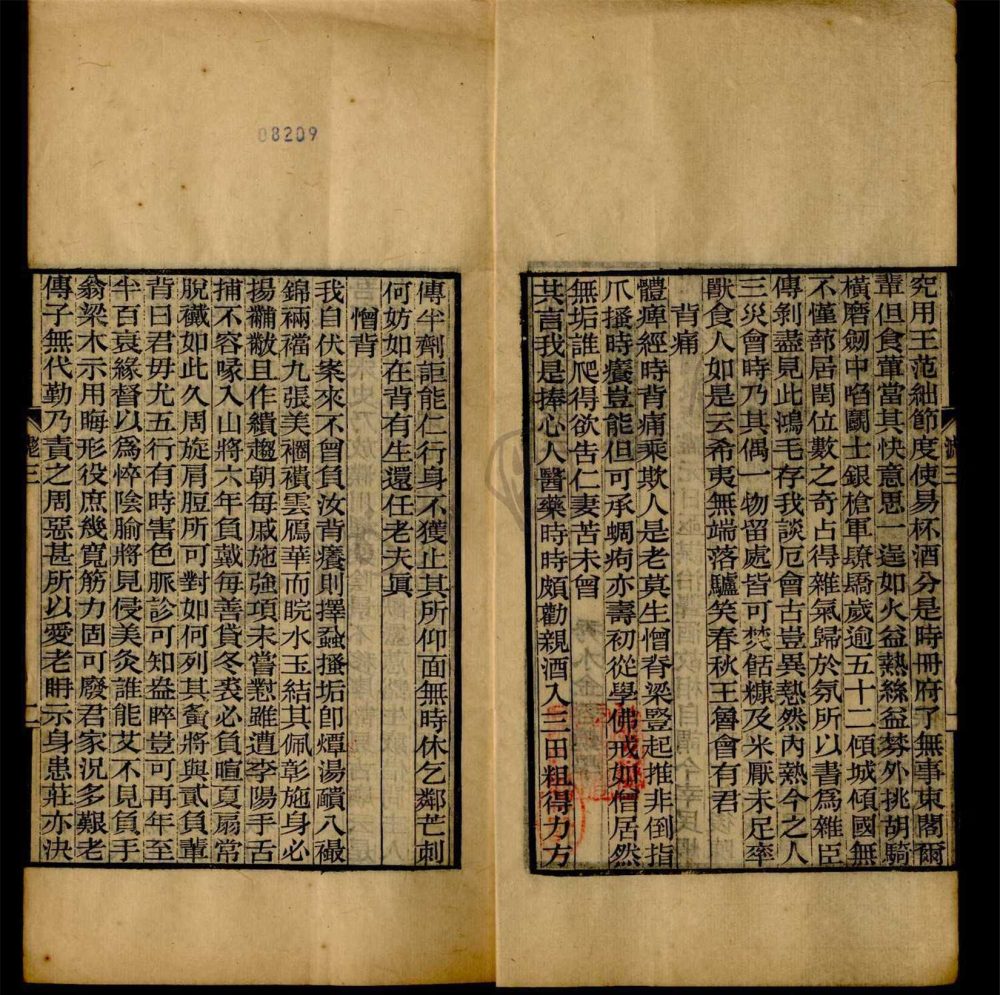 08209
究用王范絀節度使易杯酒分是時冊府了無事東閣爾
輩但食葷當其快意思一逞如火益熱絲益棼外挑胡騎
橫磨劒中啗鬬士銀槍軍驍驕歲逾五十二傾城傾國無
不僅蔀居閏位數之奇占得雜氣歸於氛所以書爲雜臣
傳剝盡見此鴻毛存我談厄會古豈異熱然內熱今之人
三災會時乃其偶一物留處皆可焚餂糠及米厭未足率
獸食人如是云希夷無端落驢笑春秋王魯會有君
背痛
體痺經時背痛乘欺人是老莫生憎脊梁豎起推非倒指
爪搔時癢豈能但可承蜩痀亦壽初從學佛戒如僧居然
無垢誰爬得欲吿仁妻苦未曾
其言我是捧心人醫藥時時頗勸親酒入三田粗得力方
傳半劑詎能仁行身不獲止其所仰面無時休乞鄰芒刺
何妨如在背有生還任老夫眞
憎背
我自伏案來不曾負汝背癢則擇蝨搔垢卽燂湯靧八襊
錦裲襠九張美襉襀雲鴈華而睆水玉結其佩彰施身必
揚黼黻且作繢趨朝每戚施強項未嘗懟雖遭李陽手舌
捕不容喙入山將六年負戴每善貸冬裘必負暄夏扇常
脫襶如此久周旋肩脰所可對如何列其夤將與貳負輩
背曰君毋尤五行有時害色脈診可知盎睟豈可再年至
半百衰緣督以爲悴陰腧將見侵美灸誰能艾不見負手
翁梁木示用晦形役庶幾寬筋力固可廢君家況多艱老
傳子無代勤乃責之周惡甚所以愛老耼示身患莊亦決
三
三